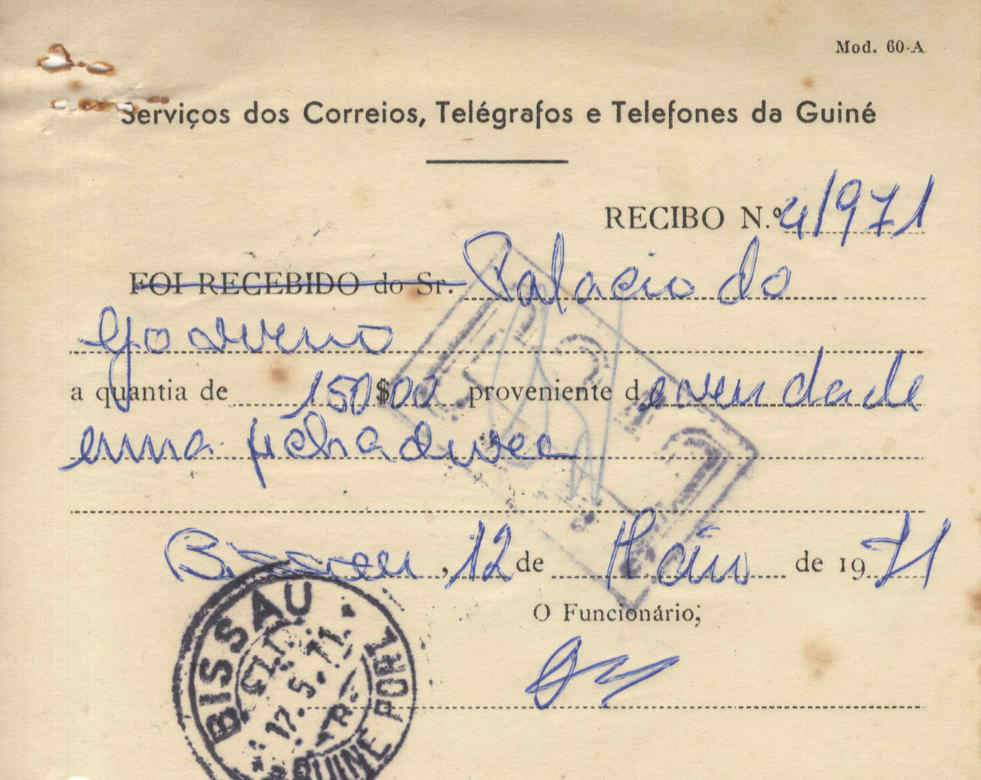 Mod. 60-A
Serviços dos Correios, Telégrafos e Telefones da Guiné
RECIBO N.º 4/971
FOI RECEBIDO do Sr. Palacio do
Governo
a quantia de 150$00 proveniente de venda de
uma fechadura
Bissau, 12 de Maio de 1971
O Funcionário,
BISSAU
CTT
12.5.71
GUINÉ PORT.